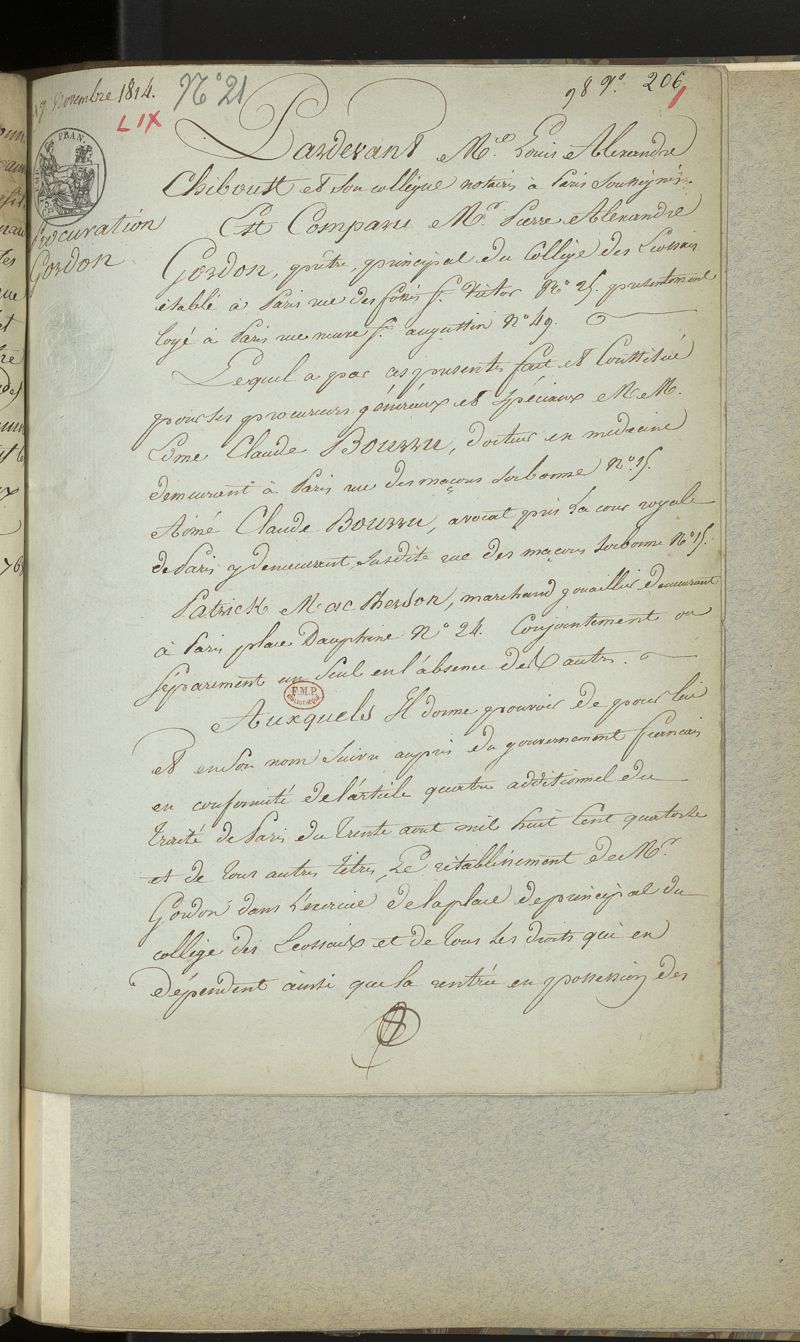 17 Novembre 1814.
N° 21
98 7° 206
LIX
FRAN.
Procuration
Gordon
Pardevant Me. Louis Alexandre
Chiboust et son collègue notaires à Paris soussignés.
Est Comparu Mr. Pierre Alexandre
Gordon, prêtre, principal du Collège des Ecossais
établé à Paris rue des fossés St. Victor N° 25. présentement
logé à Paris rue neuve St. augustin N° 49.
Lequel a par ces présentes fait et Constitué
pour ses procureurs généraux et spéciaux M.M.
Edme Claude Bourru, docteur en medecine
demeurant à Paris rue des maçons Sorbonne N° 15.
Aimé Claude Bourru, avocat près la cour royale
de Paris y demeurant susdite rue des maçons Sorbonne N° 15.
Patrick Mac Pherson, marchand jouaillier demeurant
à Paris place Dauphine N° 24. Conjointement ou
séparement un seul en l'absence des autres.
F.M.P.
Auxquels Il donne pouvoir de pour lui
et en son nom suivre auprès du gouvernement francais
en conformité de l'article quatre additionnel du
Traité de Paris du trente aout mil huit cent quatorze
et de tous autres titres, Le rétablissement de Mr.
Gordon dans l'exercice de la place de principal du
collège des Ecossaix et de tous les droits qui en
dépendent ainsi que la rentrée en possession des